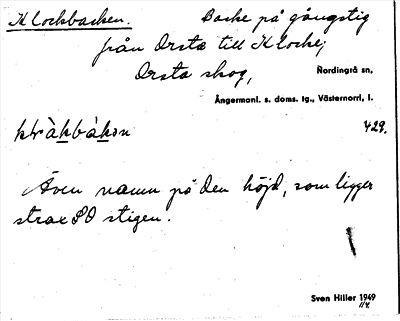 Klockbacken. Backe på gångstig
från Orsta till Klocke;
Orsta skog, Nordingrå sn,
Ångermanl. s. doms. lg., Västernorrl. l.
429.
Även namn på den höjd, som ligger
strax SO stigen.
Sven Hiller 1949